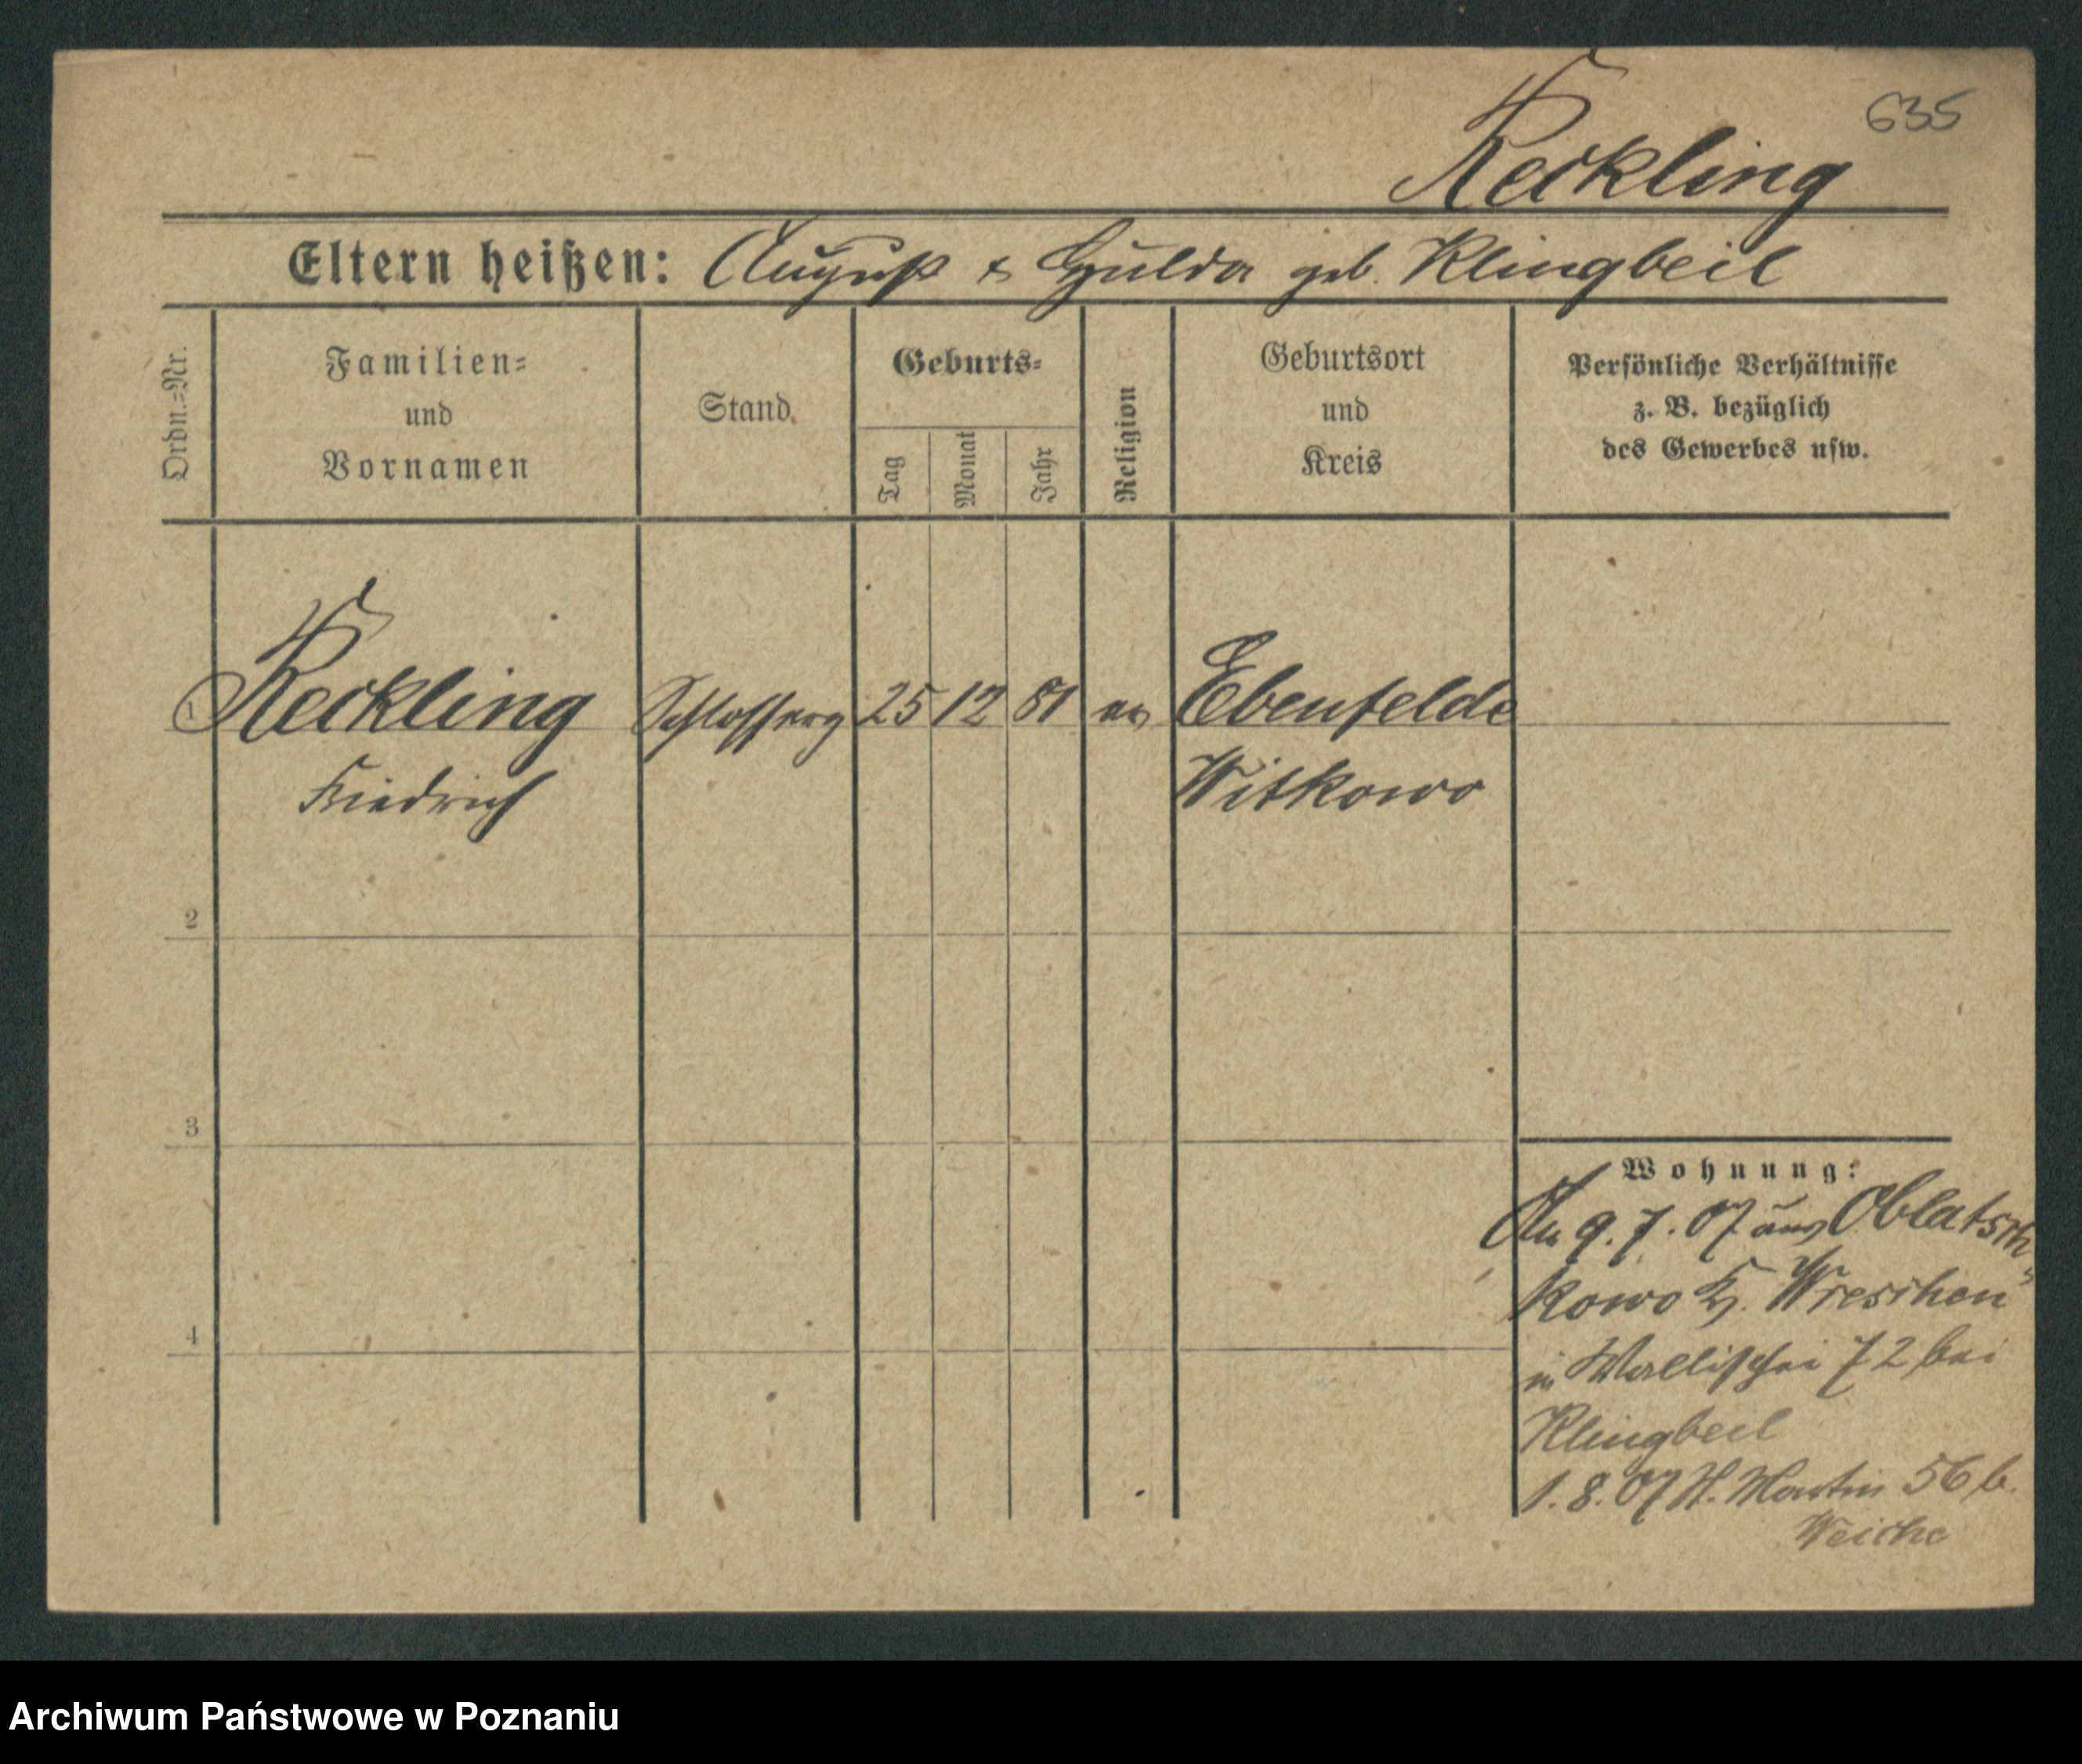 635
Reckling
Eltern heißen: August & Hulda geb. Klingbeil
Ordn.=Nr.
Familien=
und
Vornamen
Stand
Geburts=
Tag
Monat
Jahr
Religion
Geburtsort
und
Kreis
Persönliche Verhältnisse
z. B. bezüglich
des Gewerbes usw.
1 Reckling Schlosserg 25 12 81 ev Ebenfelde
Friedrich Witkowo
2
3
4
Wohnung:
9. 7. 07 aus Oblatsch
kowo Kr. Wreschen
in Wallischei 72 bei
Klingbeil
1. 8. 07 Martin 56 b.
Weiche
Archiwum Państwowe w Poznaniu